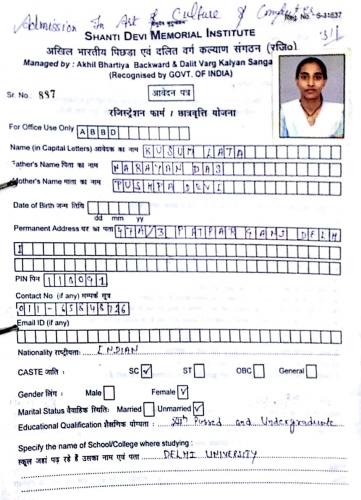 Admission In Art & Culture & Computers
Regd No. S-31637
SHANTI DEVI MEMORIAL INSTITUTE
अखिल भारतीय पिछड़ा एवं दलित वर्ग कल्याण संगठन (रजि०)
Managed by : Akhil Bhartiya Backward & Dalit Varg Kalyan Sanga
(Recognised by GOVT. OF INDIA)
Sr. No. 887
आवेदन पत्र
रजिस्ट्रेशन फार्म / छात्रवृत्ति योजना
For Office Use Only ABBD
Name (in Capital Letters) आवेदक का नाम KUSUM LATA
Father's Name पिता का नाम NARAYAN DAS
Mother's Name माता का नाम PUSHPA DEVI
Date of Birth जन्म तिथि
dd mm yy
Permanent Address घर का पता 47A/3 PATPAR GANJ DELH
I
PIN पिन 110091
Contact No (if any) सम्पर्क सूत्र
011-65848726
Email ID (if any)
Nationality राष्ट्रीयता: INDIAN
CASTE जाति : SC ✓ ST OBC General
Gender लिंग : Male Female ✓
Marital Status वैवाहिक स्थिति: Married Unmarried ✓
Educational Qualification शैक्षणिक योग्यता : Passed and Undergraduate
Specify the name of School/College where studying :
स्कूल जहां पढ़ रहे हैं उसका नाम एवं पता DELHI UNIVERSITY